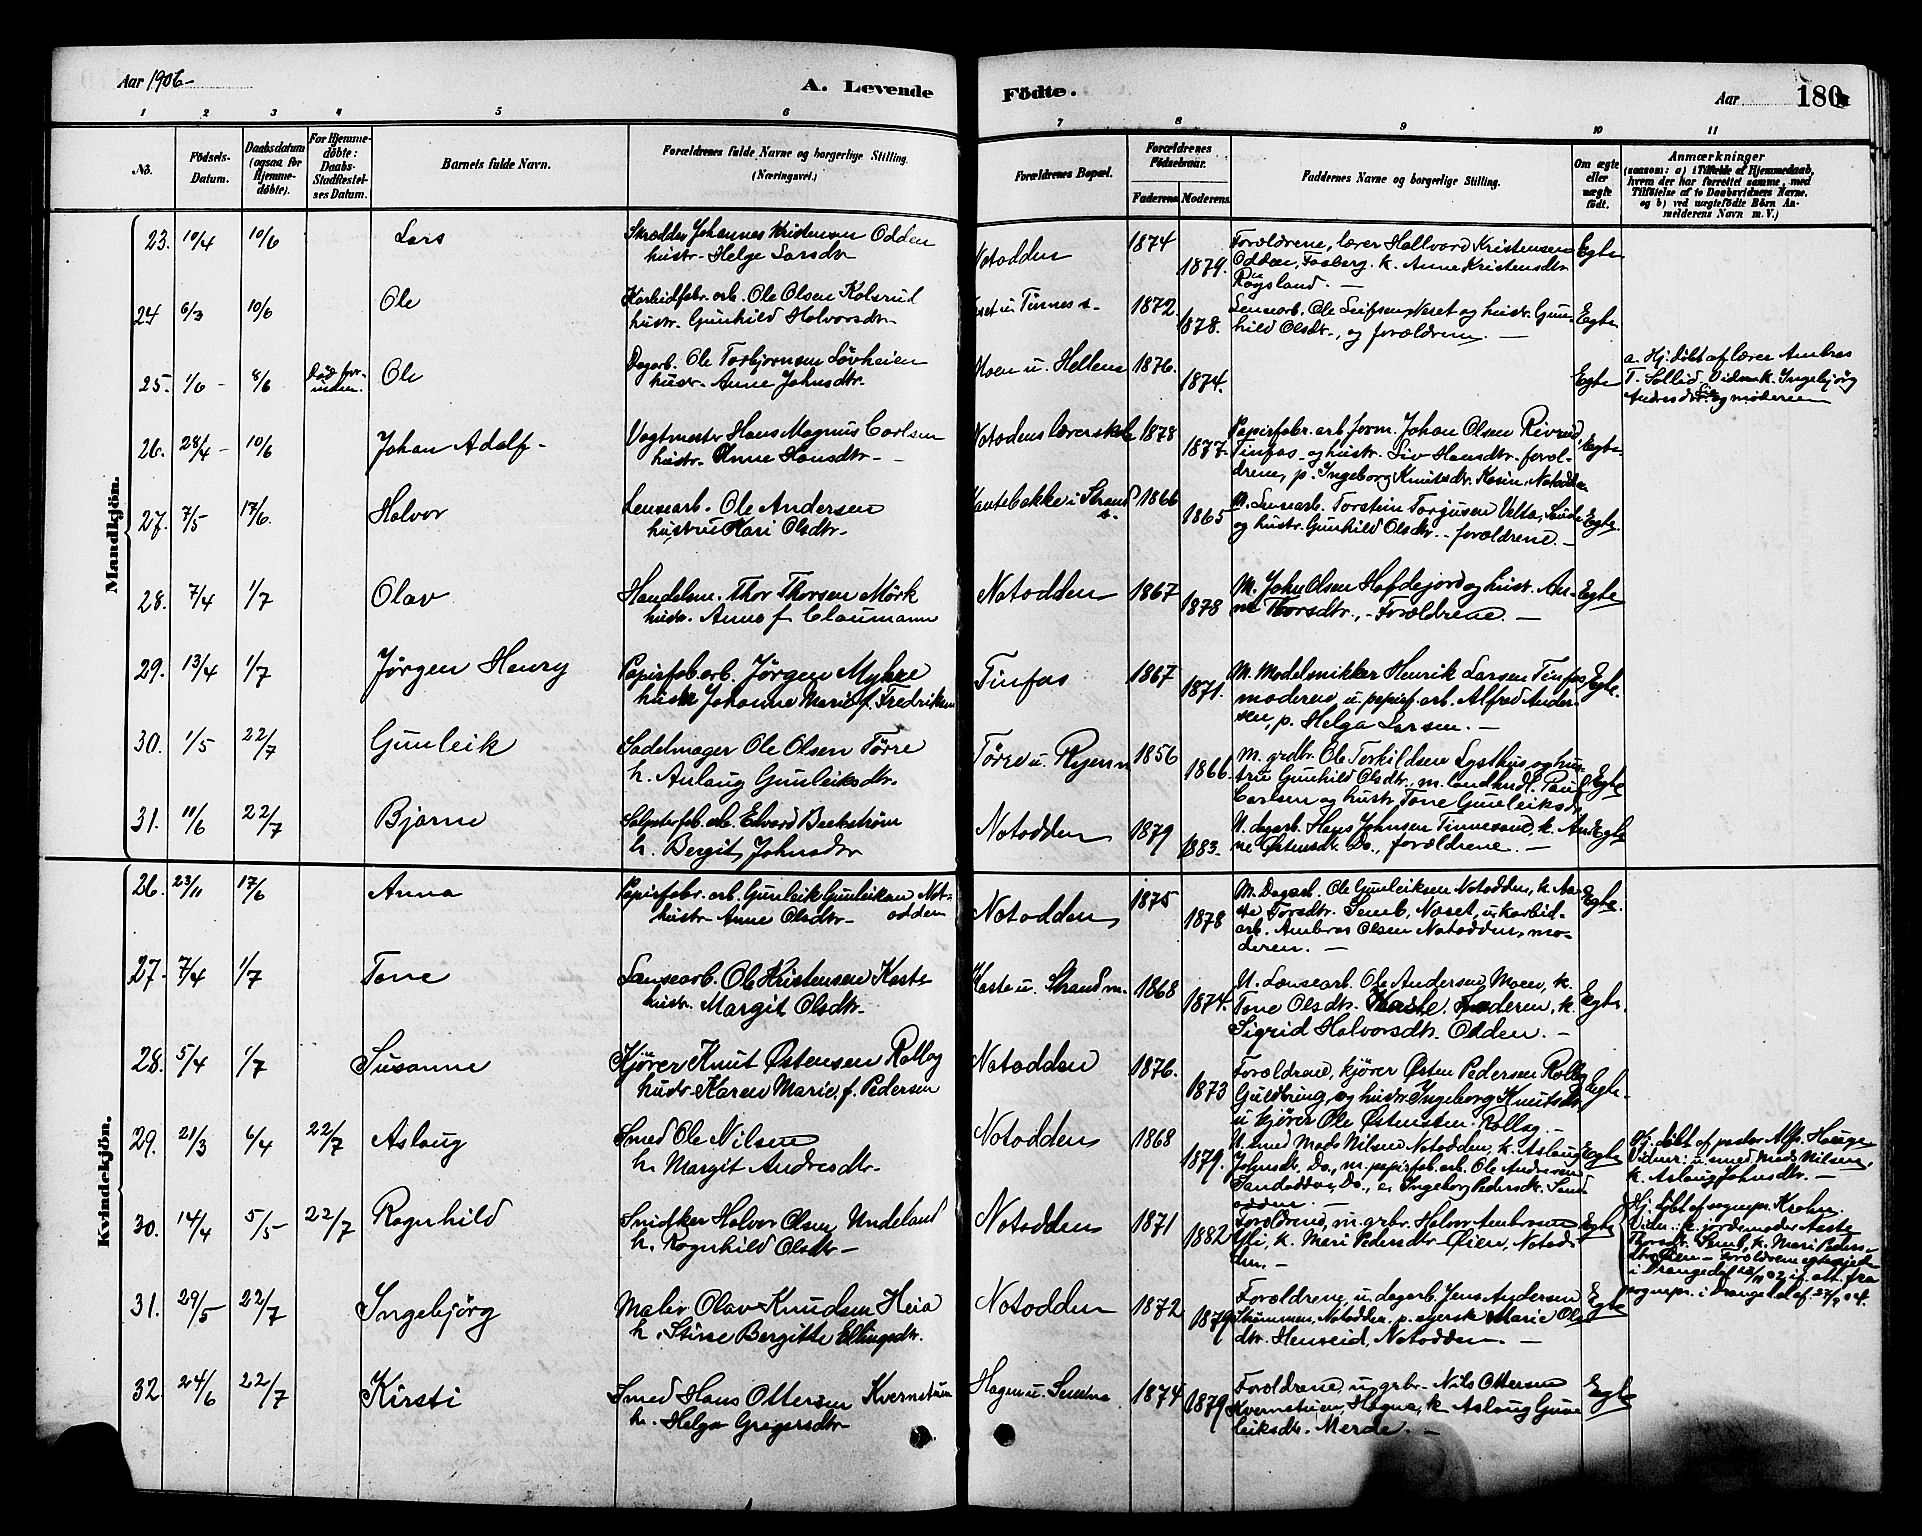 Aar 1906-
A. Levende
Födte.
Aar 180
1 2 3 4 5 6 7 8 9 10 11
No.
Födsels-
Datum.
Daabsdatum
(ogsaa for
Hjemme-
döbte).
For Hjemme-
döbte:
Daabs-
Stadfæstel-
ses Datum.
Barnets fulde Navn.
Forældrenes fulde Navne og borgerlige Stilling.
(Næringsvei.)
Forældrenes Bopæl.
Forældrenes
Födselsaar.
Faderens Moderens
Faddernes Navne og borgerlige Stilling.
Om ægte
eller
uægte
født.
Anmærkninger
(saasom: a) i Tilfælde af Hjemmedaab,
hvem der har forrettet samme, med
Tilföielse af to Daabsvidners Navne,
og b) ved uægtefödte Börn An-
melderens Navn m. V.)
Mandkjön.
23. 10/4 10/6 Lars
Skrædder Johannes Kristensen Odden
hustr. Helge Larsdtr
Notodden 1874 1879.
Forældrene, lærer Hallvard Kristensen
Odden, k. Anne Kristensdtr
Rogsland. —
Egte
24 6/3 10/6 Ole
Karbidfabr. arb. Ole Olsen Kolsrud
hustr. Gunhild Halvorsdtr
1872 1878.
Lensearb. Ole Leifsen Næset og hustr. Gun-
hild Olsdtr., og forældrene. —
Egte
25. 1/6 - 8/6 Død for-
inden. Ole
Dagarb. Ole Torbjørnsen Løvheien
hustr. Anne Johnsdtr.
Moen u. Heltens 1876. 1874.
Egte
a. Hj. døbt af lærer Ambros
T. Sollid. Vidn. k. Ingebjørg
Andresdtr. og moderen
26. 28/4 - 10/6 Johan Adolf -
Vagtmester Hans Magnus Carlsen
hustr. Anne Hansdtr. -
Notodens lærerskole 1878 1877.
Papirfabr. arb. form. Johan Olsen Rivrud,
Tinfos og hustr. Liv Hansdtr. foræl-
drene, p. Ingeborg Knutsdtr. Kasin, Notodden
Egte
27. 7/5 17/6. Halvor
Lensearb. Ole Andersen
hustru Kari Olsdtr.
1866 1865
M. Lensearb. Torstein Torjusen
og hustr. Gunhild Olsdtr. - forældrene. —
Egte.
28. 7/4 1/7 Olav
Handelsm. Thor Thorsen Mörk
hustr. Anna f. Claumann
Notodden 1867 1878
M. John Olsen Hafdejord og hustr. An-
ne Thorsdtr., - Forældrene. —
Egte
29. 13/4 1/7 Jørgen Henry
Papirfab. arb. Jørgen Myhre
hustr Johanne Marie f. Fredriksen
Tinfos 1867 1871.
M. Modelsnikker Henrik Larsen Tinfos,
moderen, u. papirf. arb. Alfred Ander-
sen, p. Helga Larsen. —
Egte.
30. 1/5 22/7 Gunleik
Sadelmager Ole Olsen Tørre
h. Anlaug Gunleiksdtr.
Tørre u. Ryenn 1856 1866.
M. grdbr. Ole Torkildsen Lysthus og hus-
tru Gunhild Olsdtr., m. landhndl. Paul
Carlsen og hustr. Tone Gunleiksd.
Egte
31. 11/6 22/7 Bjarne
Salpeterfab. arb. Edvard Backstrøm
h. Bergit Johnsdtr
Notodden 1879 1883.
U. dagarb. Hans Johnsen Tinnesand, k. An-
ne Østensdtr. Do., forældrene. —
Egte
Kvindekjön.
26. 23/11 17/6 Anna
Papirfabr. arb. Gunleik Gunleiksen Not-
odden
hustr. Anne Olsdtr. -
Notodden 1875 1878
M. Dagarb. Ole Gunleiksen Notodden, k. Aa-
ste Torsdtr. Semb, Næset, u. karbid-
arb. Ambros Olsen Notodden, mo-
deren. —
Egte.
27. 7/4 1/7 Tone
Lænsearb. Ole Kristensen Kaste
hustr. Margit Olsdtr.
Kaste u. Strandm. 1868 1874.
U. Lænsearb. Ole Andersen Moen, k.
Tone Olsdtr. Kaste. faderen, k.
Sigrid Halvorsdtr. Odden. —
Egte.
28. 5/4 1/7 Susanne
Kjører Knut Østensen Rollag
hustr. Karen Marie f. Pedersen
Notodden 1876. 1873
Forældrene, kjører Østen Pedersen Rollag
Guldbring, og hustr. Ingeborg Knutsdtr
u. kjører Ole Østensen Rollag. —
Egte.
29. 21/3 6/4 22/7 Aslaug
Smed Ole Nilsen
h. Margit Andresdtr.
Notodden 1868 1879.
U. smed Mads Nilsen Notodden, k. Aslaug
Johnsdtr. Do., m. papirfab. arb. Ole Andresen
Sandodden, Do., e. Ingeborg Pedersdtr. Sand-
odden. —
Egte
Hj. døbt af pastor Alfr. Hauge
Vidner: u. smed Mads Nilsen,
k. Aslaug Johnsdtr. —
30. 14/4 5/5 22/7 Ragnhild
Snidker Halvor Olsen Undeland
h. Ragnhild Olsdtr -
Notodden 1871 1882
Forældrene, m. grbr. Halvor Ambrosen
Yli, k. Mari Pedersdtr. Øien, Notod-
den. —
Egte
Hj. døbt af sognepr. Krohn.
Vidn.: k. jordemoder Aaste
Thorsdtr. Semb, k. Mari Peders-
dtr Øien - Forældrene egteviede
i Drangedal 22/11 02 if. att. fra
sognepr. i Drangedal af
31. 29/5 22/7 Ingebjörg
Maler Olav Knudsen Heia
h. Stine Bergitte Ellingsdtr.
Notodden 1872 1879
Forældrene, u. dagarb. Jens Andersen
Strømmen, Notodden, p. syersk Marie Ols-
dtr. Henseid, Notodden. —
Egte
32. 24/6 22/7 Kirsti
Smed Hans Ottersen Kvernstuen
h. Helga Gregersdtr.
Hagen u. Semme 1874 1879
Forældrene, u. grbr. Nils Ottersen
Kvernstuen, Hagna, k. Aslaug Gun-
leiksdtr. Merde. —
Egte